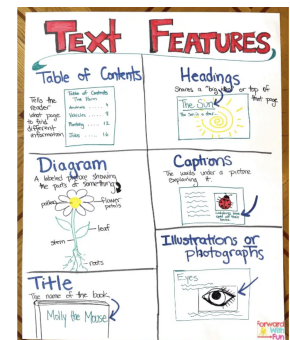 TEXT FEATURES
Table of Contents
Tells the
reader
what page
to find
different
information.
Table of Contents
The Farm
Animals .... 4
Vehicles .... 9
Planting .... 12
Jobs .... 16
Headings
Shares a "big idea" or top of
that page
The Sun
The Sun is a star...
Diagram
A labeled picture showing
the parts of something
pollen
flower
petals
leaf
stem
roots
Captions
The words under a picture
explaining it.
Illustrations or
photographs
Eyes
Title
The name of the book.
Molly the Mouse
forward
With
Fun